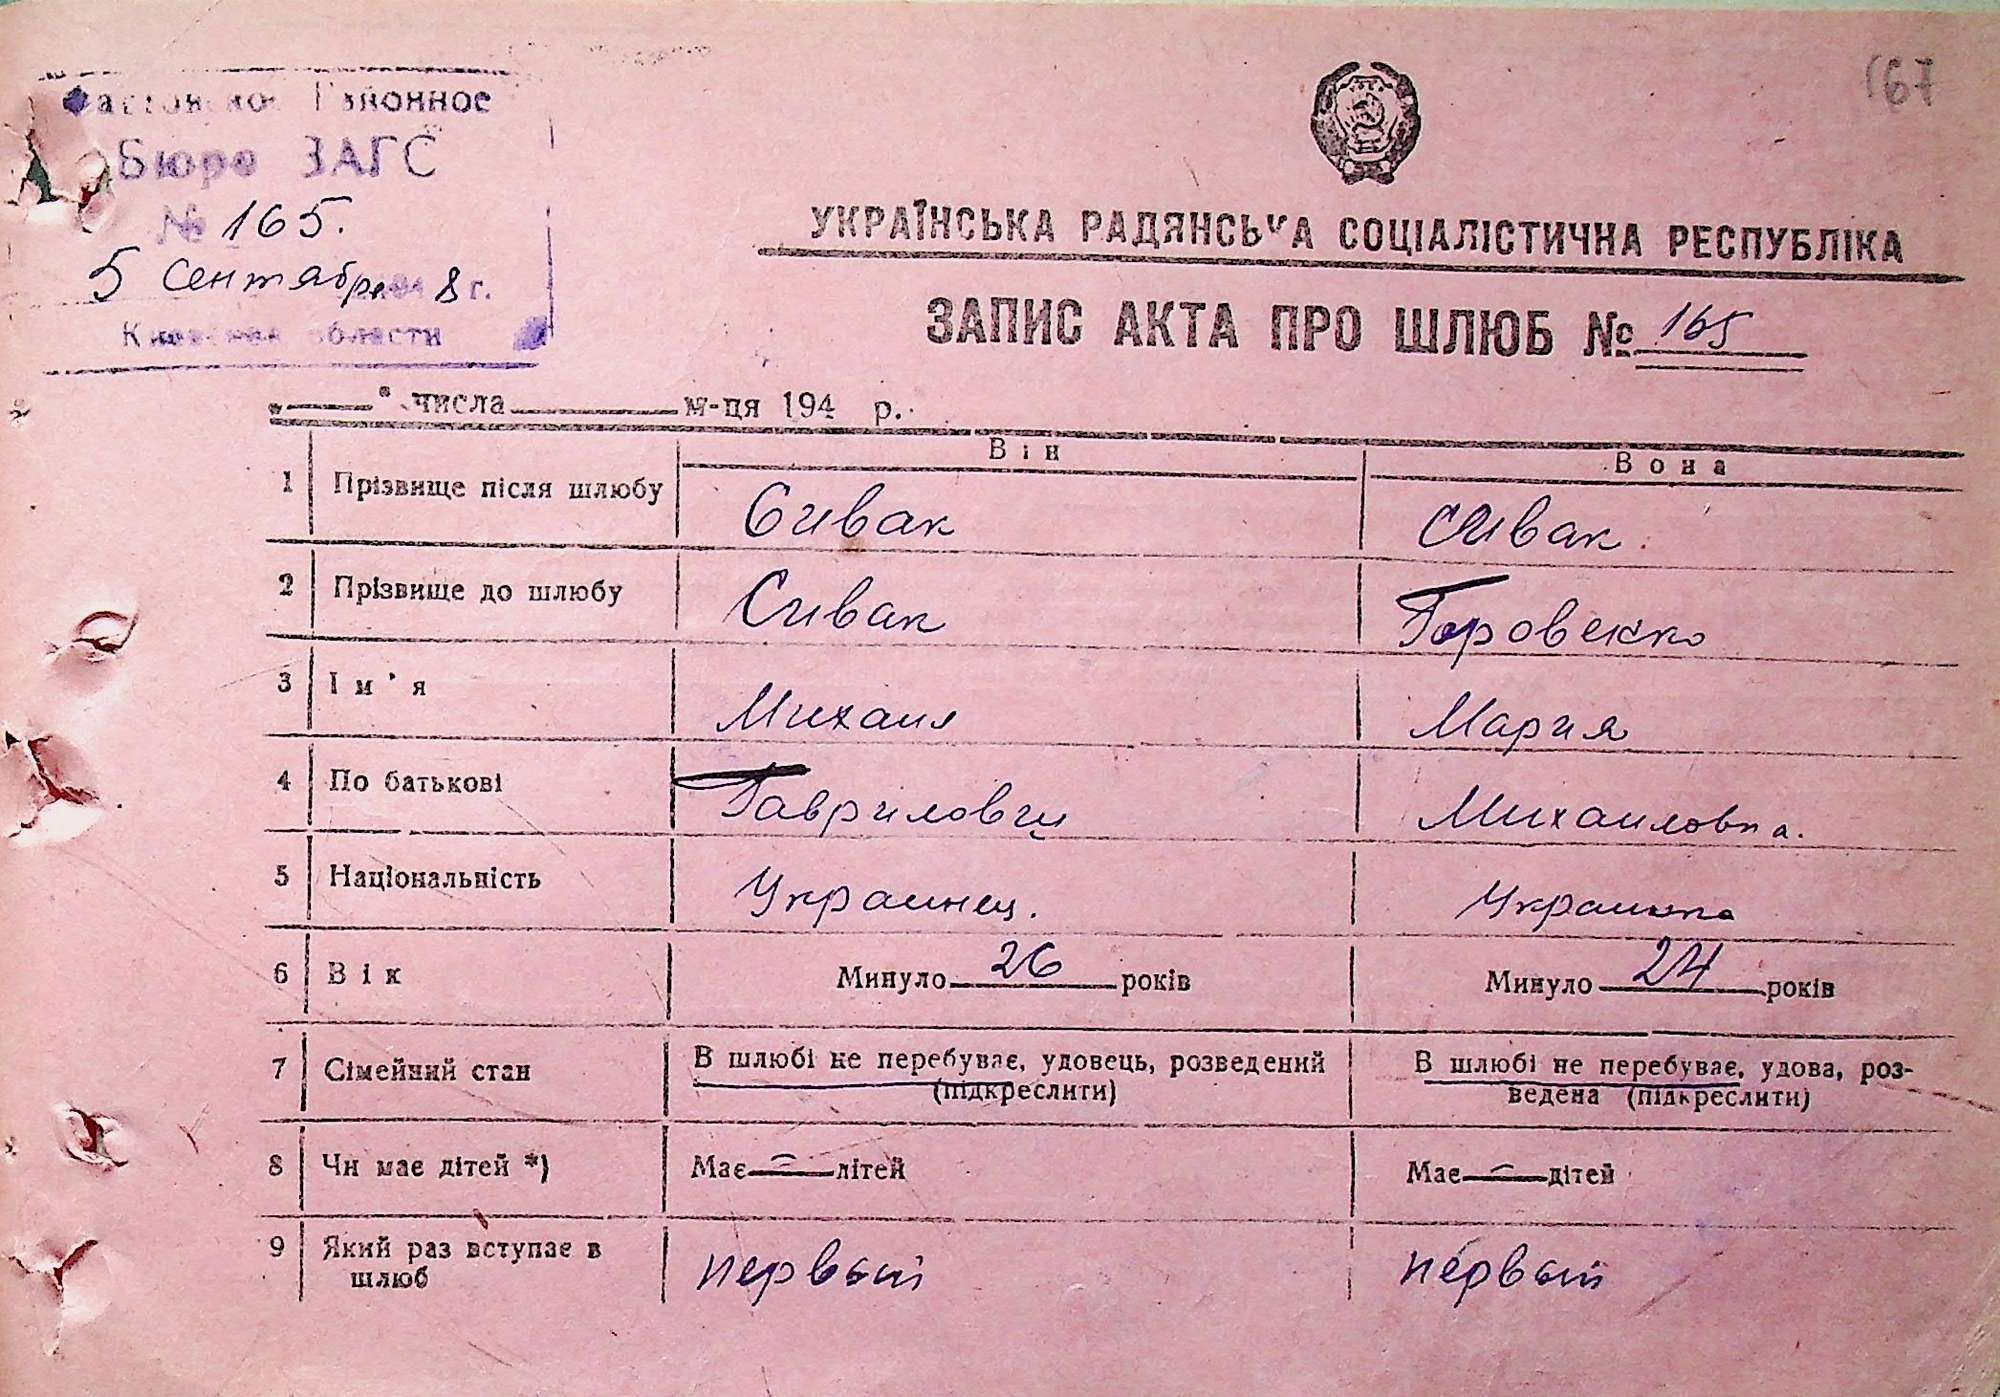 167
Районное
Бюро ЗАГС
№ 165.
5 Сентября 1948 г.
Киевской области
УКРАЇНСЬКА РАДЯНСЬКА СОЦІАЛІСТИЧНА РЕСПУБЛІКА
ЗАПИС АКТА ПРО ШЛЮБ № 165
„ " числа м-ця 194 р.
Він Вона
1 Прізвище після шлюбу Сивак Сивак
2 Прізвище до шлюбу Сивак Горовенко
3 Ім'я Михаил Мария
4 По батькові Гаврилович Михаиловна.
5 Національність Украинец. Украинка
6 Вік Минуло 26 років Минуло 24 років
7 Сімейний стан В шлюбі не перебуває, удовець, розведений В шлюбі не перебуває, удова, роз-
(підкреслити) ведена (підкреслити)
8 Чи має дітей *) Має — дітей Має — дітей
9 Який раз вступає в первый первый
шлюб